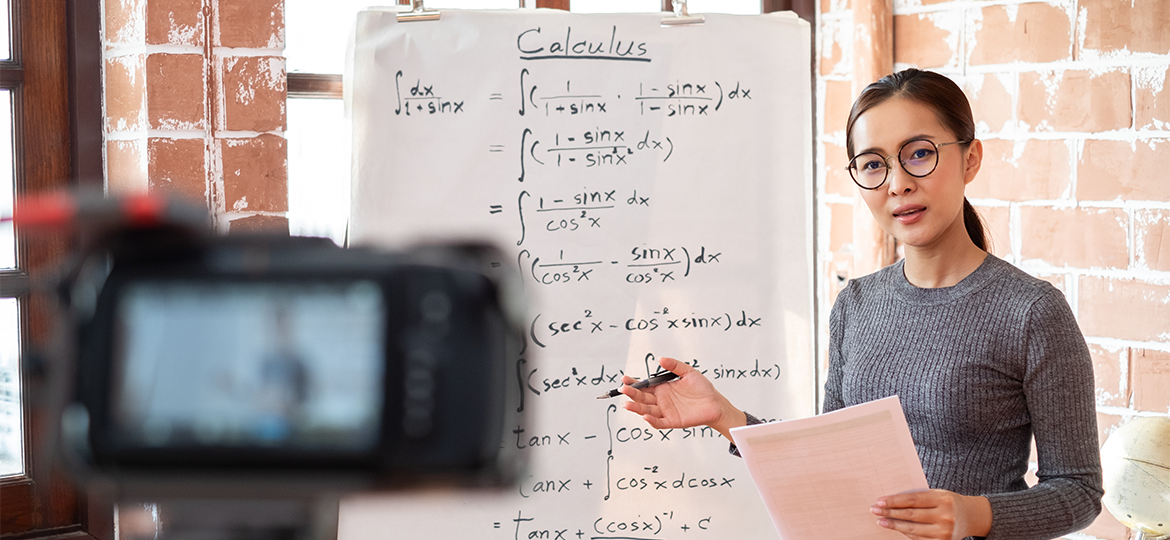 Calculus
∫ dx/(1 + sinx) = ∫( 1/(1 + sinx) · (1 - sinx)/(1 - sinx) ) dx
= ∫( (1 - sinx)/(1 - sin²x²) dx)
= ∫ (1 - sinx)/(cos²x) dx
= ∫( 1/(cos²x) - sinx/(cos²x) ) dx
∫(sec²x - cos⁻²x sinx) dx
∫(sec²x dx sinx dx)
= tanx - ∫cosx sin
tanx + ∫cos⁻²x dcosx
= tanx + (cosx)⁻¹ + c